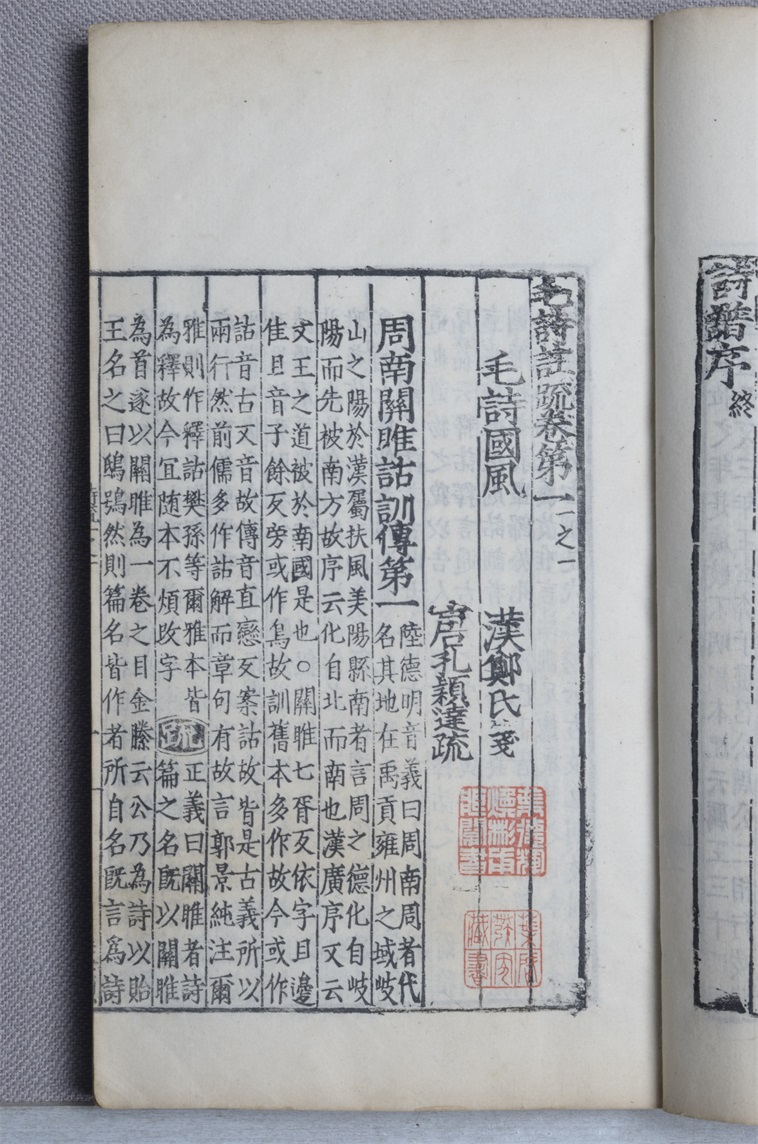 詩譜序 終
毛詩註疏卷第一 一之一
毛詩國風 漢鄭氏箋
唐孔穎達疏
周南關雎詁訓傳第一
陸德明音義曰周南周者代
名其地在禹貢雍州之域岐
山之陽於漢屬扶風美陽縣南者言周之德化自岐
陽而先被南方故序云化自北而南也漢廣序又云
文王之道被於南國是也○關雎七胥反依字且邊
隹且音子餘反旁或作鳥故訓舊本多作故今或作
詁音古又音故傳音直戀反案詁故皆是古義所以
兩行然前儒多作詁解而章句有故言郭景純注爾
雅則作釋詁樊孫等爾雅本皆
為釋故今宜随本不煩改字
疏
正義曰關雎者詩
篇之名既以關雎
為首遂以關雎為一卷之目金縢云公乃為詩以貽
王名之曰鴟鴞然則篇名皆作者所自名既言為詩
葉德輝
煥彬甫
藏閱書
葉啓
發家
藏書